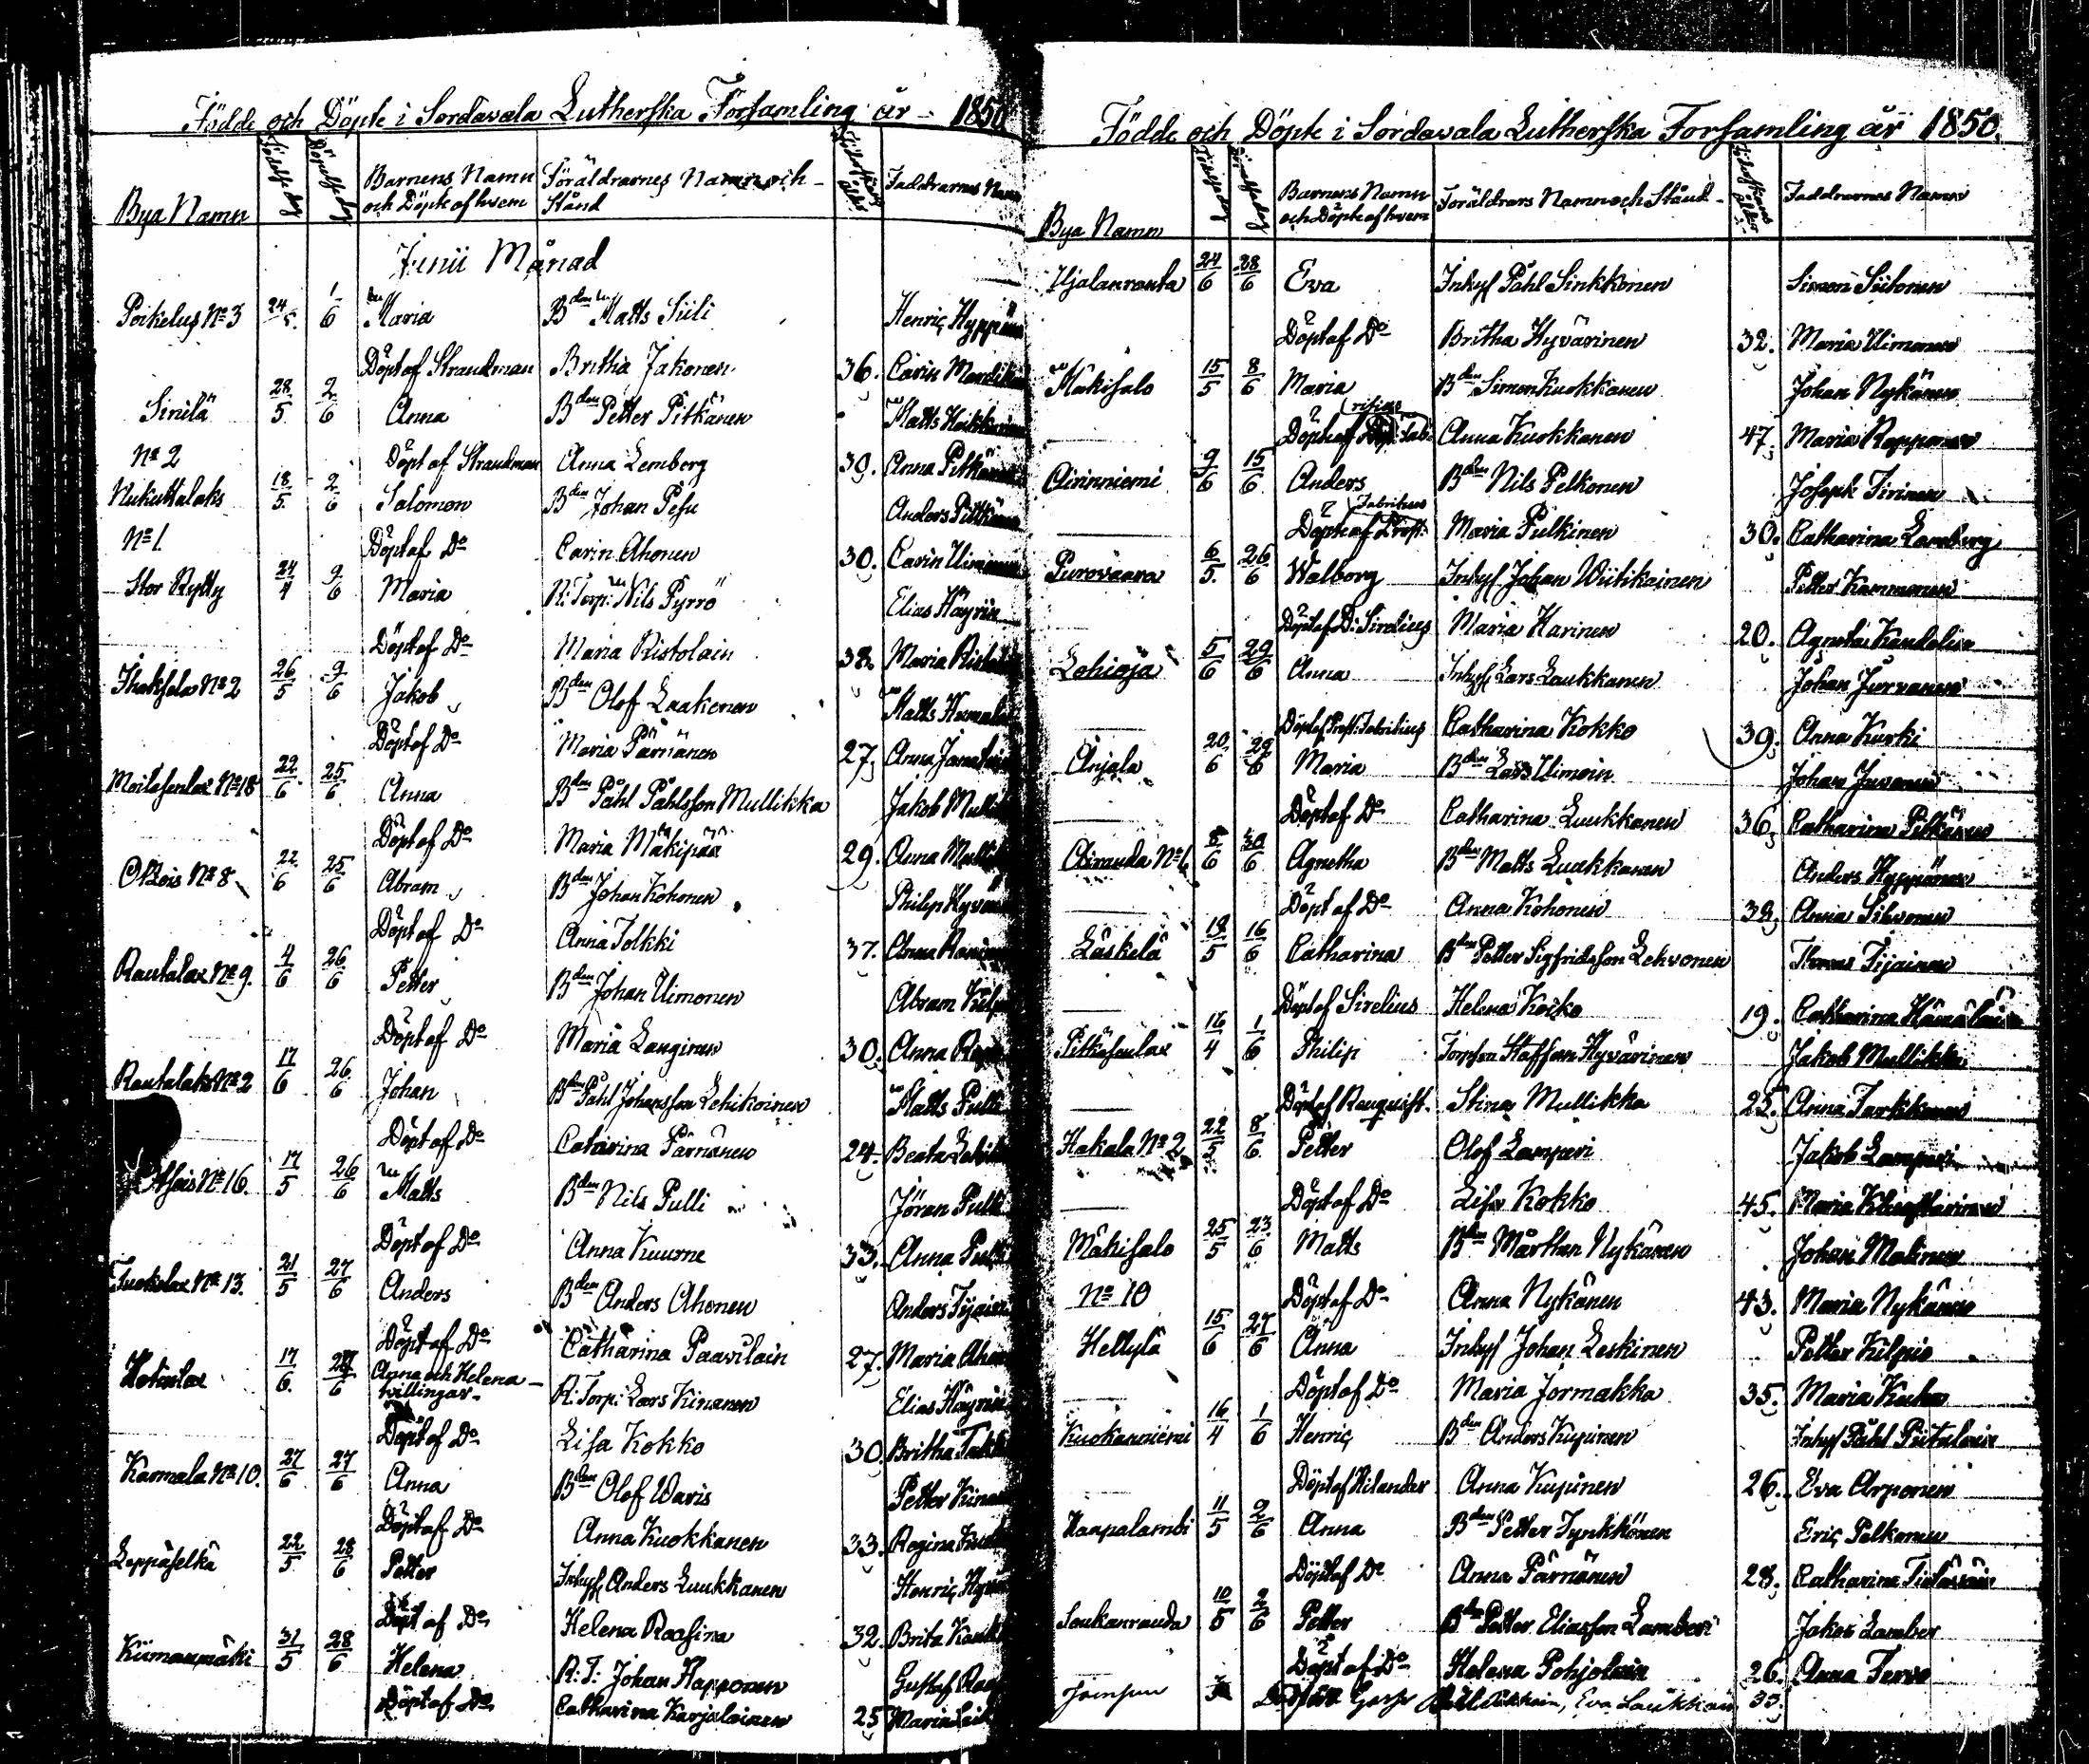 Födde och Döpte i Sordavala Lutherska Församling år - 1850
Bya Namn Födelse dag Döpelse dag Barnens Namn och Döpte af hvem Föräldrarnes Namn och Stånd Ålder Faddrarnes Namn
Junii Månad
Poikelus No 3 24/5 1/6 Maria Bden Matts Siili Henric Hyppöne
Döpt af Strandman Britha Jakonen 36. Carin
Sinilä 28/5 2/6 Anna Bden Petter Pitkänen Matts
No 2 Döpt af Strandman Anna Lemberg 30. Anna Pitkäne
Nukuttalaks 18/5 2/6 Salomon Bden Johan Pesu Anders Pittkäne
No 1 Döpt af Do Carin Ahonen 30. Carin
Stor Rytty 24/4 9/6 Maria R: Torp: Nils Pyrrö Elias Häyrin
Döpt af Do Maria Ristolain 38. Maria Risto
Ihaksela No 2 26/5 9/6 Jakob Bden Olof Laakonen Matts
Döpt af Do Maria Pärnänen 27. Anna
Meilasenlax No 18 22/6 25/6 Anna Bden Påhl Påhlsson Mullikka Jakob Mulli
Döpt af Do Maria Mäkipää 29. Anna Mulli
Otsois No 8 22/6 25/6 Abram Bden Johan Kohonen Philip Hyvö
Döpt af Do Anna Tolkki 37. Anna
Rautalax No 9. 4/6 26/6 Petter Bden Johan Uimonen Abram
Döpt af Do Maria Langinen 30. Anna
Rautalaks No 2 17/6 26/6 Johan Bden Påhl Johansson Lehikoinen Matts Pulli
Döpt af Do Catarina Pärnänen 24. Beata
No 16. 17/5 26/6 Matts Bden Nils Pulli Jöran Pulli
Döpt af Do Anna Kuurne 33. Anna Pulli
Tuokslax No 13. 21/5 27/6 Anders Bden Anders Ahonen Anders Tijain
Döpt af Do Catharina Paavilain 27. Maria Aho
Hotinlax 17/6 27/6 Anna och Helena tvillingar R: Torp: Lars Kinanen Elias Häyrin
Döpt af Do Lisa Kokko 30. Britha
Karmala No 10. 27/6 27/6 Anna Bden Olof Waris Petter Kina
Döpt af Do Anna Kuokkanen 33. Regina
Leppäselkä 22/5 28/6 Petter Inhys Anders Luukkanen Henric
Döpt af Do Helena Roosina 32. Brita
Kiimanmäki 31/5 28/6 Helena R: T: Johan Happonen Gustaf
Döpt af Do Catharina Karjalainen 25 Maria
Födde och Döpte i Sordavala Lutherska Forsamling år 1850.
Bya Namn Födelse dag Döpelse dag Barnens Namn och Döpte af hvem Foräldrars Namn och Stånd Ålder Faddrarnes Namn
Hjalanranta 24/6 28/6 Eva Inhys Påhl Sinkkonen Simon Siitonen
Döpt af Do Britha Hyvärinen 32. Maria Uimonen
Mäkisalo 15/5 8/6 Maria Bden Simon Kuokkanen Johan Nykänen
Döpt af Anna Kuokkanen 47. Maria Ropponen
Airinniemi 9/6 15/6 Anders Bden Nils Pelkonen Joseph Tirinen
Döpt af Prost: Fabritius Maria Pulkinen 30. Catharina Lamberg
Purovaara 6/5 26/6 Walborg Inhys Johan Wiitikainen Petter Kammonen
Döpt af D: Sirelius Maria Karinen 20. Agneta Kandolin
Lohioja 5/6 29/6 Anna Inhys Lars Laukkanen Johan Jurvanen
Döpt af Prost: Fabritius Catharina Kokko 39. Anna Kurki
Anjala 20/6 29/6 Maria Bden Lars Uimoin Johan Juvonen
Döpt af Do Catharina Luukkanen 36. Catharina Pitkänen
Airanda No 6 8/6 30/6 Agnetha Bden Matts Luukkanen Anders Hyppönen
Döpt af Do Anna Kohonen 38. Anna Sihvonen
Läskelä 18/5 16/6 Catharina Bden Petter Sigfridsson Lehvonen Thomas Tijainen
Döpt af Sirelius Helena Koiko 19. Catharina Hämäläin
Pitkäsenlax 16/4 1/6 Philip Torpsen Staffan Hyvärinen Jakob Mullikka
Döpt af Renquist. Stina Mullikka 25. Anna Tarkkonen
Hakala No 2 22/5 8/6 Petter Olof Lamperi Jakob Lamperi
Döpt af Do Lisa Kokko 45. Maria
Mäkisalo 25/5 23/6 Matts Bden Mårthan Nykänen Johan Malinen
No 10 Döpt af Do Anna Nykänen 43. Maria Nykänen
Hellylä 15/6 27/6 Anna Inhys Johan Leskinen Petter Kilpiö
Döpt af Do Maria Jormakka 35. Maria
Kuokanniemi 16/4 1/6 Henric Bden Anders Kupinen Inhys Påhl Piitulain
Döpt af Hilander Anna Kupinen 26. Eva Arponen
Haapalambi 11/5 2/6 Anna Bden Petter Tynkkönen Eric Pelkonen
Döpt af Do Anna Pärnänen 28. Catharina
Soukanranda 10/5 2/6 Petter Bden Petter Eliasson Lamberi Jakob Lamber
Döpt af Do Helena Pohjolain 26. Anna Tervo
Eva Laukkain 33.